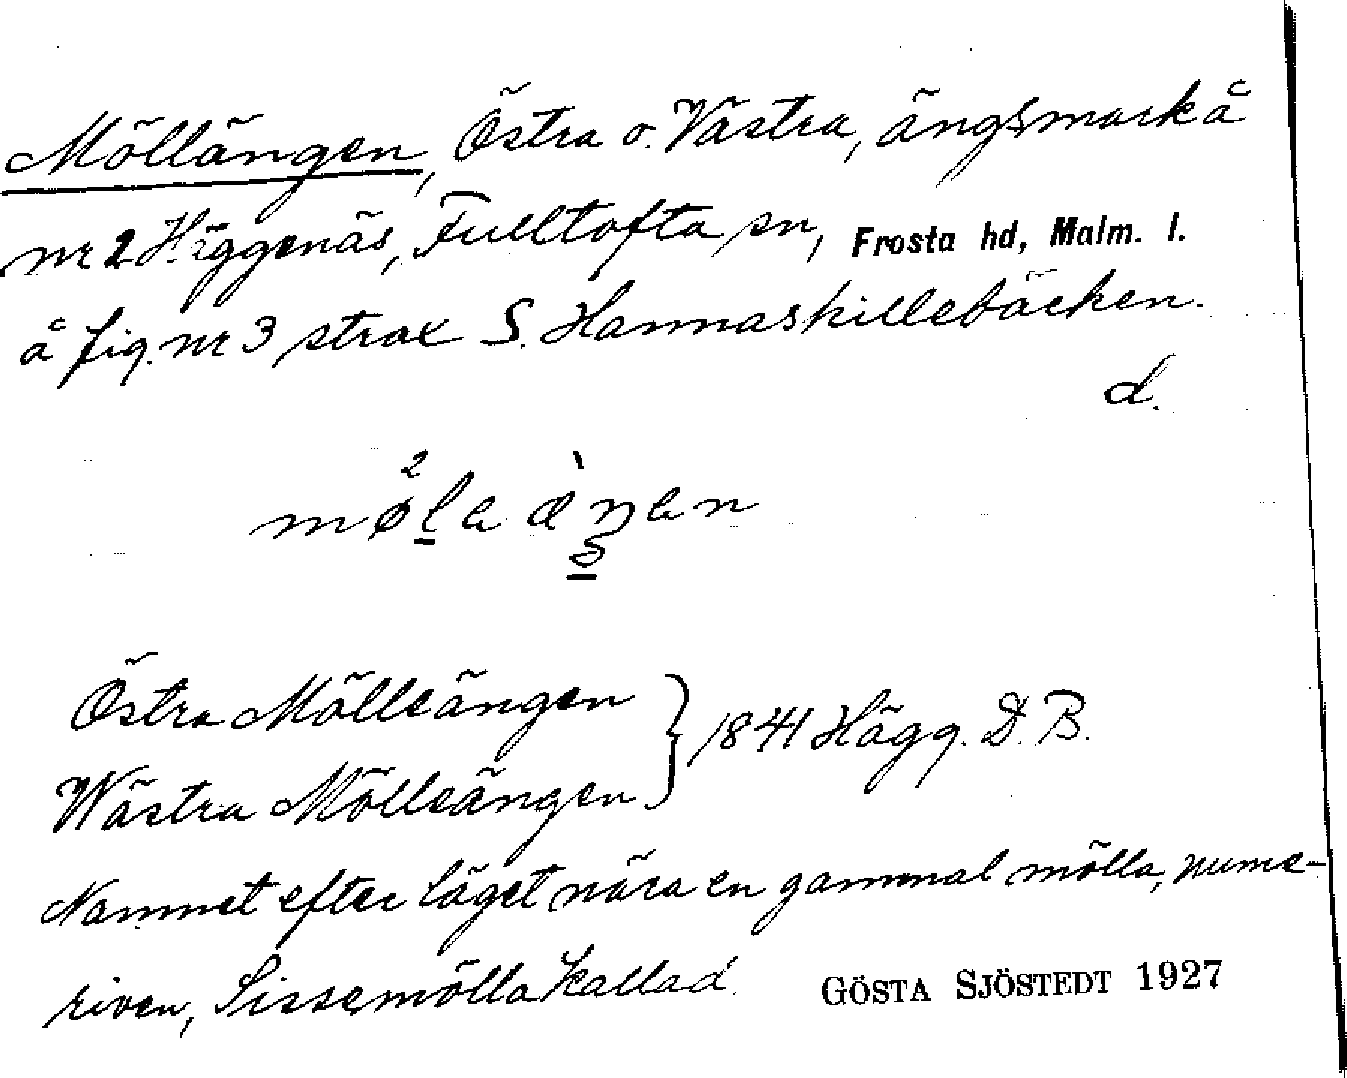 Möllängen, Östra o. Västra, ängsmark å
nr 2 Häggenäs, Fulltofta sn, Frosta hd, Malm. l.
å fig. nr 3 strax S. Hannaskillebäcken.
d.
Östra Mölleängen
Wästra Mölleängen } 1841 Hägg. D. B.
Namnet efter läget nära en gammal mölla, nume-
riven, Sissemölla kallad.
GÖSTA SJÖSTEDT 1927